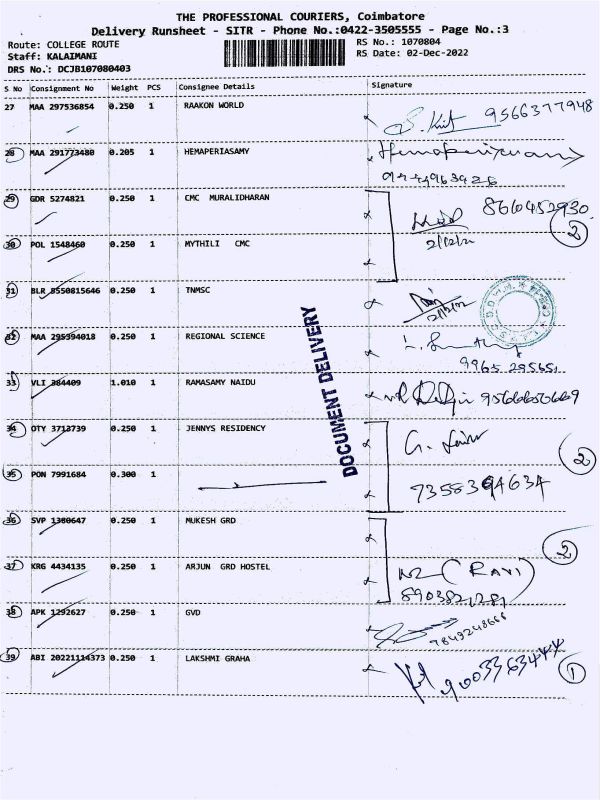 THE PROFESSIONAL COURIERS, Coimbatore
Delivery Runsheet - SITR - Phone No.:0422-3505555 - Page No.:3
Route: COLLEGE ROUTE RS No.: 1070804
Staff: KALAIMANI RS Date: 02-Dec-2022
DRS No.: DCJB107080403
S No Consignment No Weight PCS Consignee Details Signature
27 MAA 297536854 0.250 1 RAAKON WORLD 9566377948
28 MAA 291773480 0.205 1 HEMAPERIASAMY Hemaperiyasamy
29 GDR 5274821 0.250 1 CMC MURALIDHARAN 8610452930
2/12/22 2
30 POL 1548460 0.250 1 MYTHILI CMC
31 BLR 8550815646 0.250 1 TNMSC
32 MAA 295394018 0.250 1 REGIONAL SCIENCE
9965295651
33 VLI 384409 1.010 1 RAMASAMY NAIDU
34 OTY 3713739 0.250 1 JENNYS RESIDENCY
2
35 PON 7991684 0.300 1 7358394634
36 SVP 1360647 0.250 1 MUKESH GRD
2
37 KRG 4434135 0.250 1 ARJUN GRD HOSTEL (RAVI)
38 APK 1292627 0.250 1 GVD
39 ABI 20221114373 0.250 1 LAKSHMI GRAHA
1
DOCUMENT DELIVERY